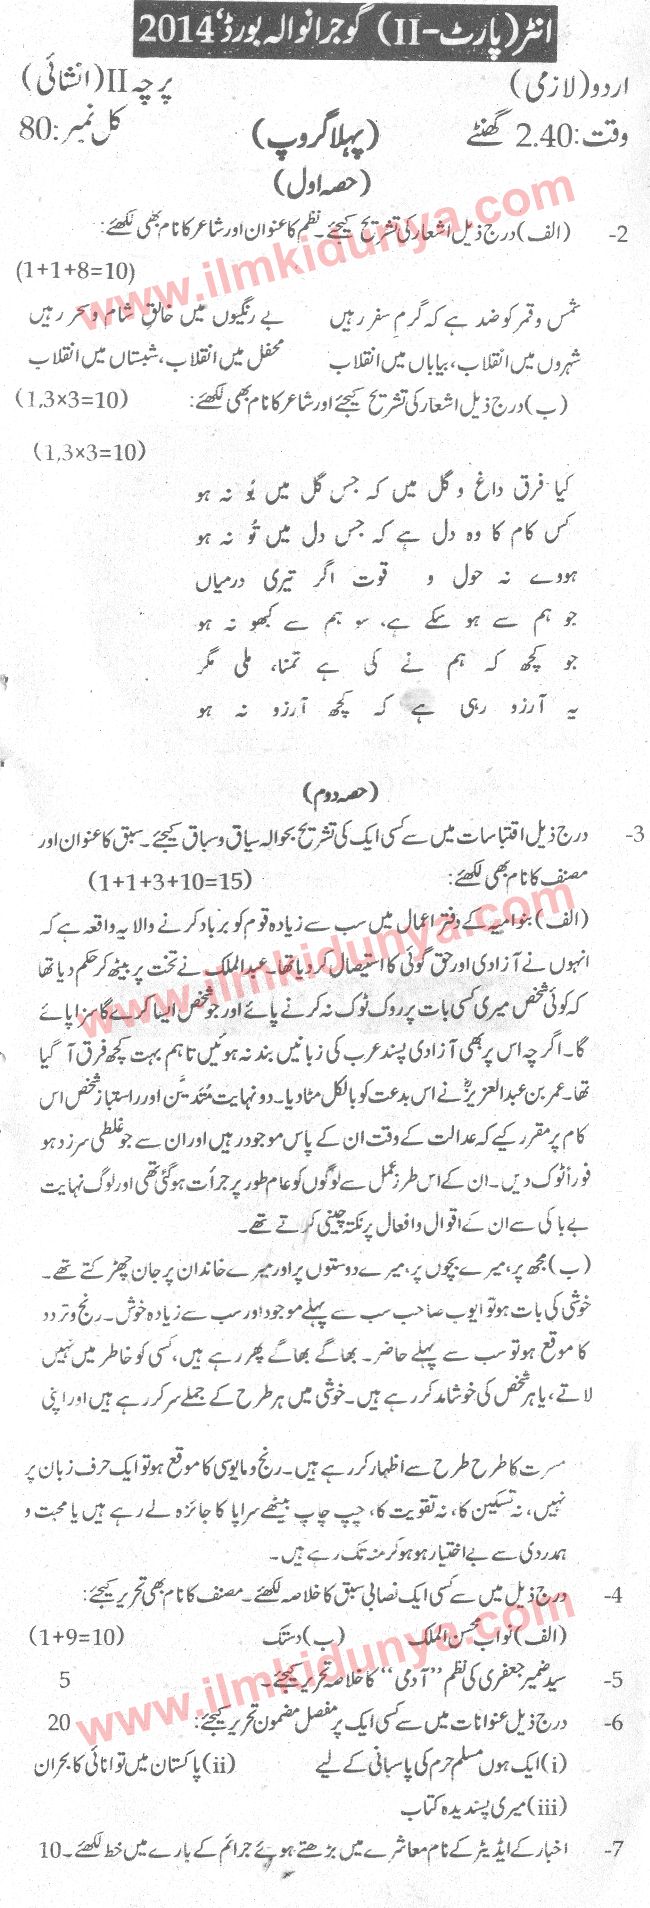 انٹر (پارٹ-II) گوجرانوالہ بورڈ، 2014
اردو (لازمی) پرچہ II (انشائی)
وقت: 2.40 گھنٹے (پہلا گروپ) کل نمبر: 80
(حصہ اول)
2- (الف) درج ذیل اشعار کی تشریح کیجئے۔ نظم کا عنوان اور شاعر کا نام بھی لکھئے:
(1+1+8=10)
شمس و قمر کو ضد ہے کہ گرمِ سفر رہیں بے رنگیوں میں خالقِ شام و سحر رہیں
شہروں میں انقلاب، بیاباں میں انقلاب محفل میں انقلاب، شبستاں میں انقلاب
(ب) درج ذیل اشعار کی تشریح کیجئے اور شاعر کا نام بھی لکھئے: (1,3×3=10)
(1,3×3=10)
کیا فرق داغ و گل میں کہ جس گل میں بُو نہ ہو
کس کام کا وہ دل ہے کہ جس دل میں تُو نہ ہو
ہووے نہ حول و قوت اگر تیری درمیاں
جو ہم سے ہو سکے ہے، سو ہم سے کبھو نہ ہو
جو کچھ کہ ہم نے کی ہے تمنا، ملی مگر
یہ آرزو رہی ہے کہ کچھ آرزو نہ ہو
(حصہ دوم)
3- درج ذیل اقتباسات میں سے کسی ایک کی تشریح بحوالہ سیاق و سباق کیجئے۔ سبق کا عنوان اور
مصنف کا نام بھی لکھئے: (1+1+3+10=15)
(الف) بنو امیہ کے دفتر اعمال میں سب سے زیادہ قوم کو برباد کرنے والا یہ واقعہ ہے کہ
انہوں نے آزادی اور حق گوئی کا استیصال کر دیا تھا۔ عبدالملک نے تخت پر بیٹھ کر حکم دیا تھا
کہ کوئی شخص میری کسی بات پر روک ٹوک نہ کرنے پائے اور جو شخص ایسا کرے گا سزا پائے
گا۔ اگرچہ اس پر بھی آزادی پسند عرب کی زبانیں بند نہ ہوئیں تاہم بہت کچھ فرق آ گیا
تھا۔ عمر بن عبدالعزیزؒ نے اس بدعت کو بالکل مٹا دیا۔ دو نہایت متدین اور راستباز شخص اس
کام پر مقرر کیے کہ عدالت کے وقت ان کے پاس موجود رہیں اور ان سے جو غلطی سرزد ہو
فوراً ٹوک دیں۔ ان کے اس طرزِ عمل سے لوگوں کو عام طور پر جرأت ہو گئی تھی اور لوگ نہایت
بے باکی سے ان کے اقوال و افعال پر نکتہ چینی کرتے تھے۔
(ب) مجھ پر، میرے بچوں پر، میرے دوستوں پر اور میرے خاندان پر جان چھڑکتے تھے۔
خوشی کی بات ہو تو ایوب صاحب سب سے پہلے موجود اور سب سے زیادہ خوش۔ رنج و تردد
کا موقع ہو تو سب سے پہلے حاضر۔ بھاگے بھاگے پھر رہے ہیں، کسی کو خاطر میں نہیں
لاتے، یا ہر شخص کی خوشامد کر رہے ہیں۔ خوشی میں ہر طرح کے جملے سر کر رہے ہیں اور اپنی
مسرت کا طرح طرح سے اظہار کر رہے ہیں۔ رنج و مایوسی کا موقع ہو تو ایک حرف زبان پر
نہیں، نہ تسکین کا، نہ تقویت کا، چپ چاپ بیٹھے سراپا کا جائزہ لے رہے ہیں یا محبت و
ہمدردی سے بے اختیار ہو ہو کر منہ تک رہے ہیں۔
4- درج ذیل میں سے کسی ایک نصابی سبق کا خلاصہ لکھئے۔ مصنف کا نام بھی تحریر کیجئے:
(الف) نواب محسن الملک (ب) دستک (1+9=10)
5- سید ضمیر جعفری کی نظم "آدمی" کا خلاصہ تحریر کیجئے۔ 5
6- درج ذیل عنوانات میں سے کسی ایک پر مفصل مضمون تحریر کیجئے: 20
(i) ایک ہوں مسلم حرم کی پاسبانی کے لیے (ii) پاکستان میں توانائی کا بحران
(iii) میری پسندیدہ کتاب
7- اخبار کے ایڈیٹر کے نام معاشرے میں بڑھتے ہوئے جرائم کے بارے میں خط لکھئے۔ 10
www.ilmkidunya.com
www.ilmkidunya.com
www.ilmkidunya.com